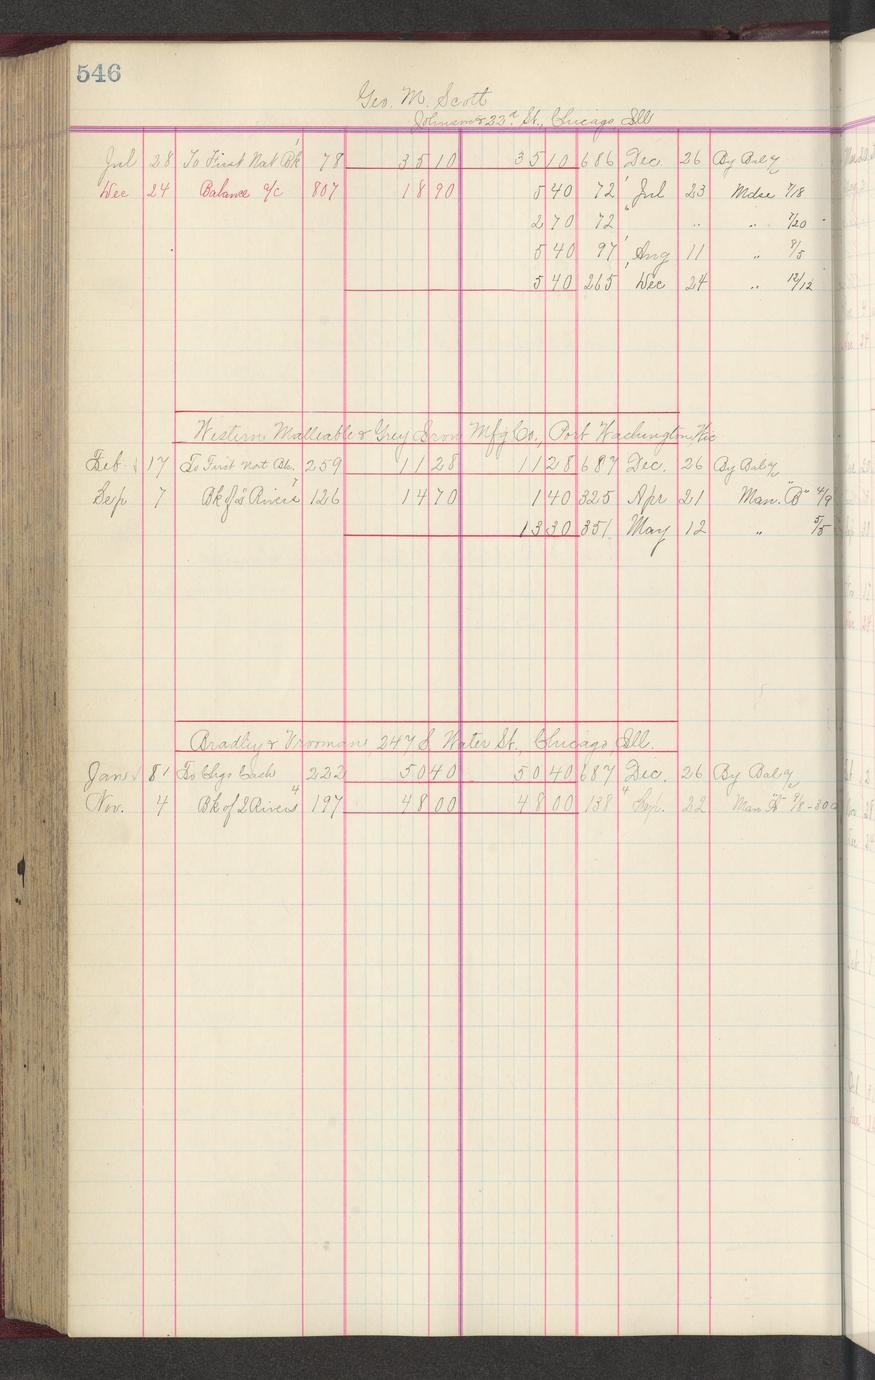 546
Geo. M. Scott
Johnson & 22d St., Chicago, Ill
Jul 28 To First Nat Bk 78 35 10 35 10 686 Dec. 26 By Bal
Dec 24 Balance a/c 807 18 90 5 40 72 Jul 23 Mdse 7/18
2 70 72 " " " 7/20
5 40 97 Aug 11 " 8/5
5 40 265 Dec 24 " 12/12
Western Malleable & Grey Iron Mfg Co., Port Washington, Wis
Feb 17 To First Nat Bk. 259 11 28 11 28 687 Dec. 26 By Bal
Sep 7 Bk of 2 Rivers 126 14 70 1 40 325 Apr 21 Man. "B" 4/9
13 30 351 May 12 " 5/5
Bradley & Vrooman, 247 S. Water St., Chicago, Ill.
Jan 8 To Chgs Cash 222 50 40 50 40 687 Dec. 26 By Bal
Nov. 4 Bk of 2 Rivers 197 48 00 48 00 138 Sep. 22 Man 9/8 - 30